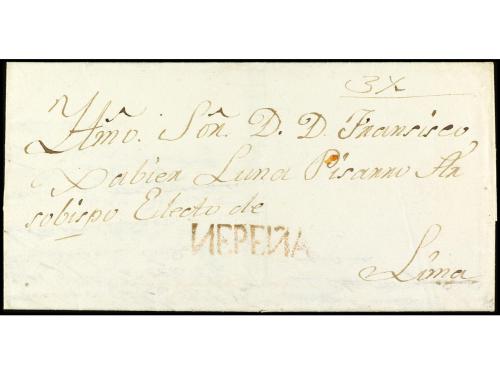 3X
Yltmo. Sōr. D. D. Francisco
Xabier Luna Pisarro Ar
sobispo Electo de
NEPEÑA
Lima